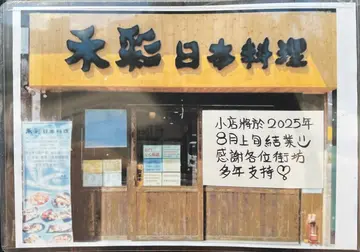 禾彩日本料理
禾彩日本料理
小店將於2025年
8月上旬結業
感謝各位街坊
多年支持